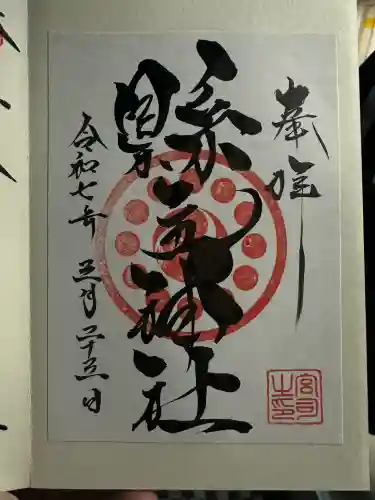 奉拝
縣主神社
令和七年 三月二十三日
宮司之印